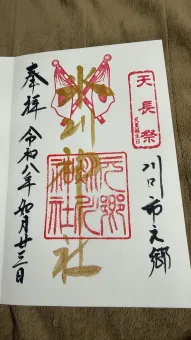 天長祭
天皇誕生日
川口市元郷
氷川神社
元郷氷川神社
奉拝
令和八年如月廿三日